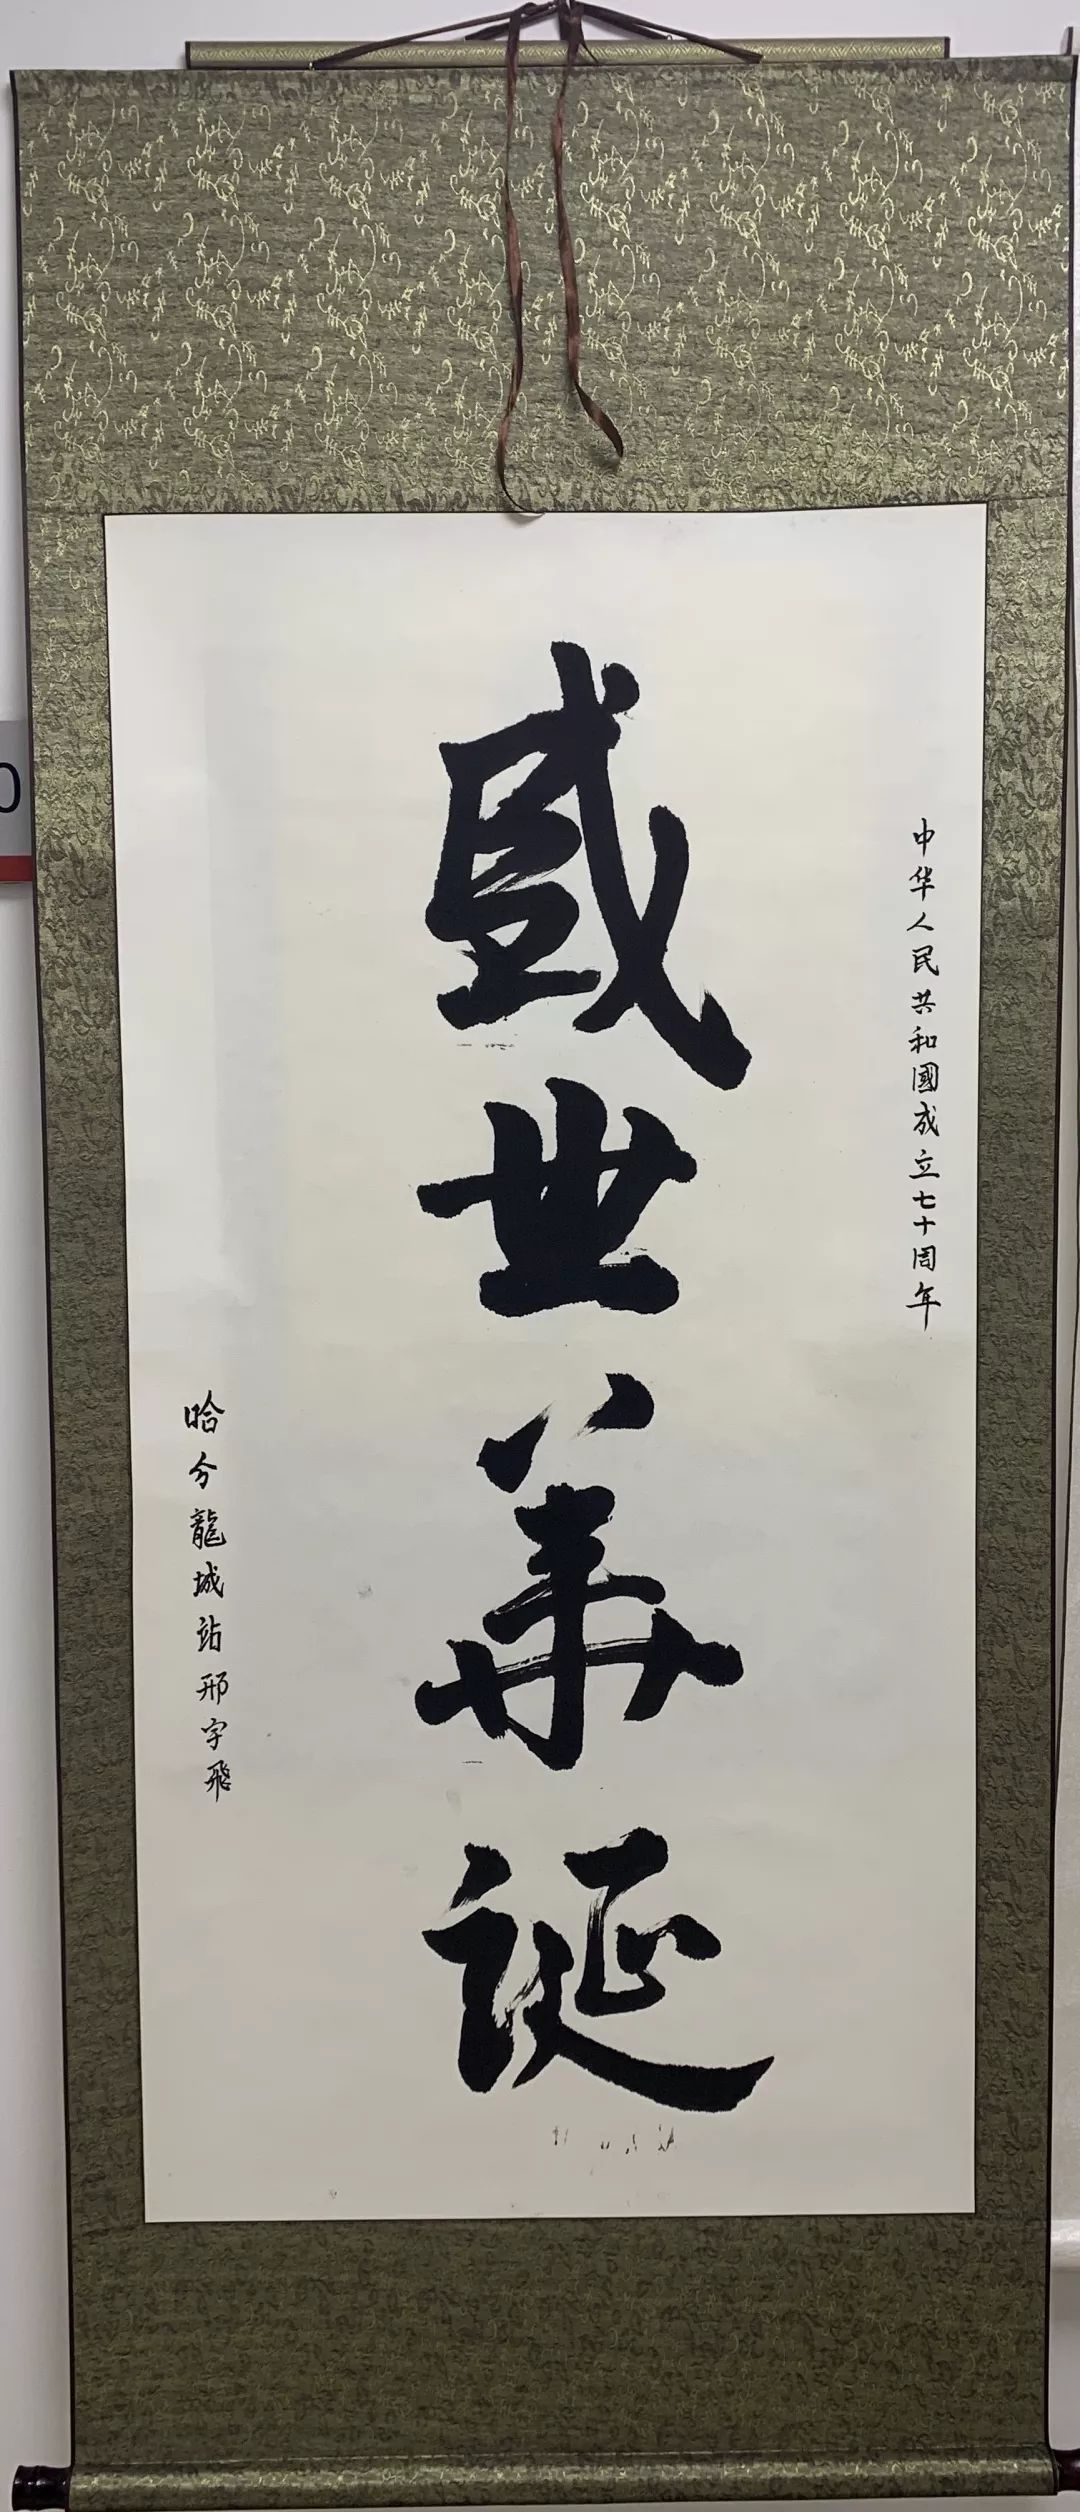 中华人民共和國成立七十周年
盛世華誕
哈分龍城站邢宇飛
0